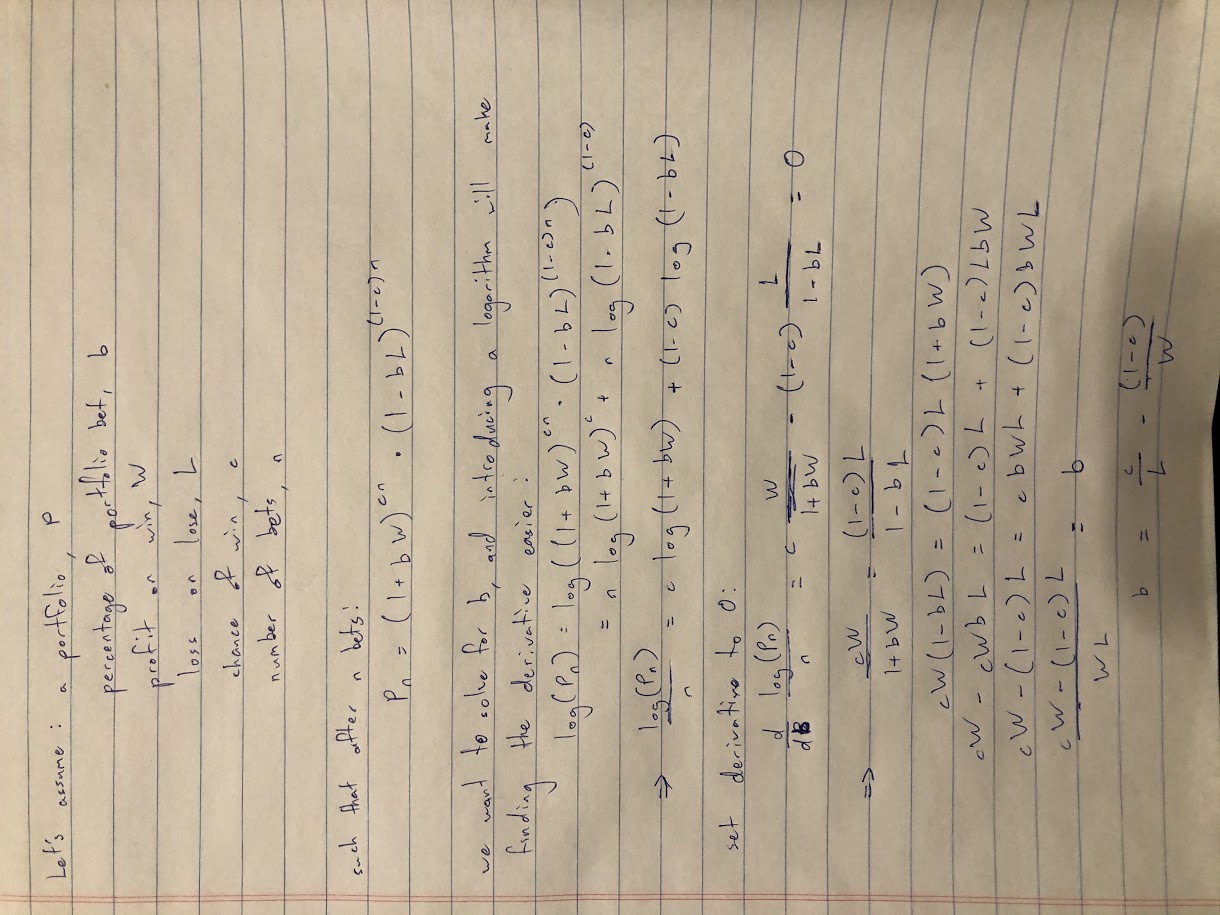 Let's assume : a portfolio, P
percentage of portfolio bet, b
profit on win, W
loss on lose, L
chance of win, c
number of bets, n
such that after n bets:
Pₙ = (1 + bW)^(cn) · (1 - bL)^((1-c)n)
we want to solve for b, and introducing a logarithm will make
finding the derivative easier :
log(Pₙ) = log((1 + bW)^(cn) · (1 - bL)^((1-c)n))
= n log(1 + bW)^c + n log(1 - bL)^((1-c))
⇒ log(Pₙ)/n = c log(1 + bW) + (1-c) log(1 - bL)
set derivative to 0:
d/db log(Pₙ)/n = c W/(1 + bW) - (1-c) L/(1 - bL) = 0
⇒ cW/(1 + bW) = (1-c)L/(1 - bL)
cW(1-bL) = (1-c)L(1+bW)
cW - cWbL = (1-c)L + (1-c)LbW
cW - (1-c)L = cbWL + (1-c)bWL
(cW - (1-c)L)/(WL) = b
b = c/L - (1-c)/W